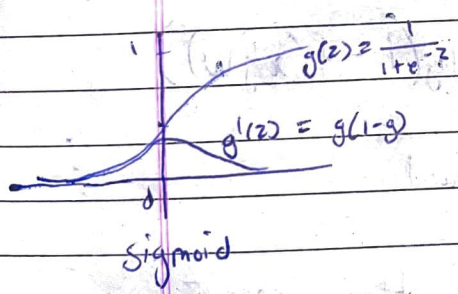 1
g(z) = 1/(1+e^-z)
g'(z) = g(1-g)
0
sigmoid